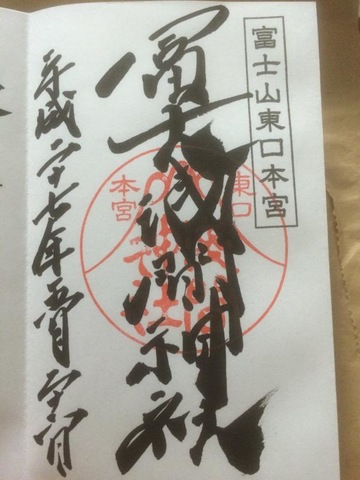 富士山東口本宮
冨士浅間神社
東口
本宮
平成二十七年